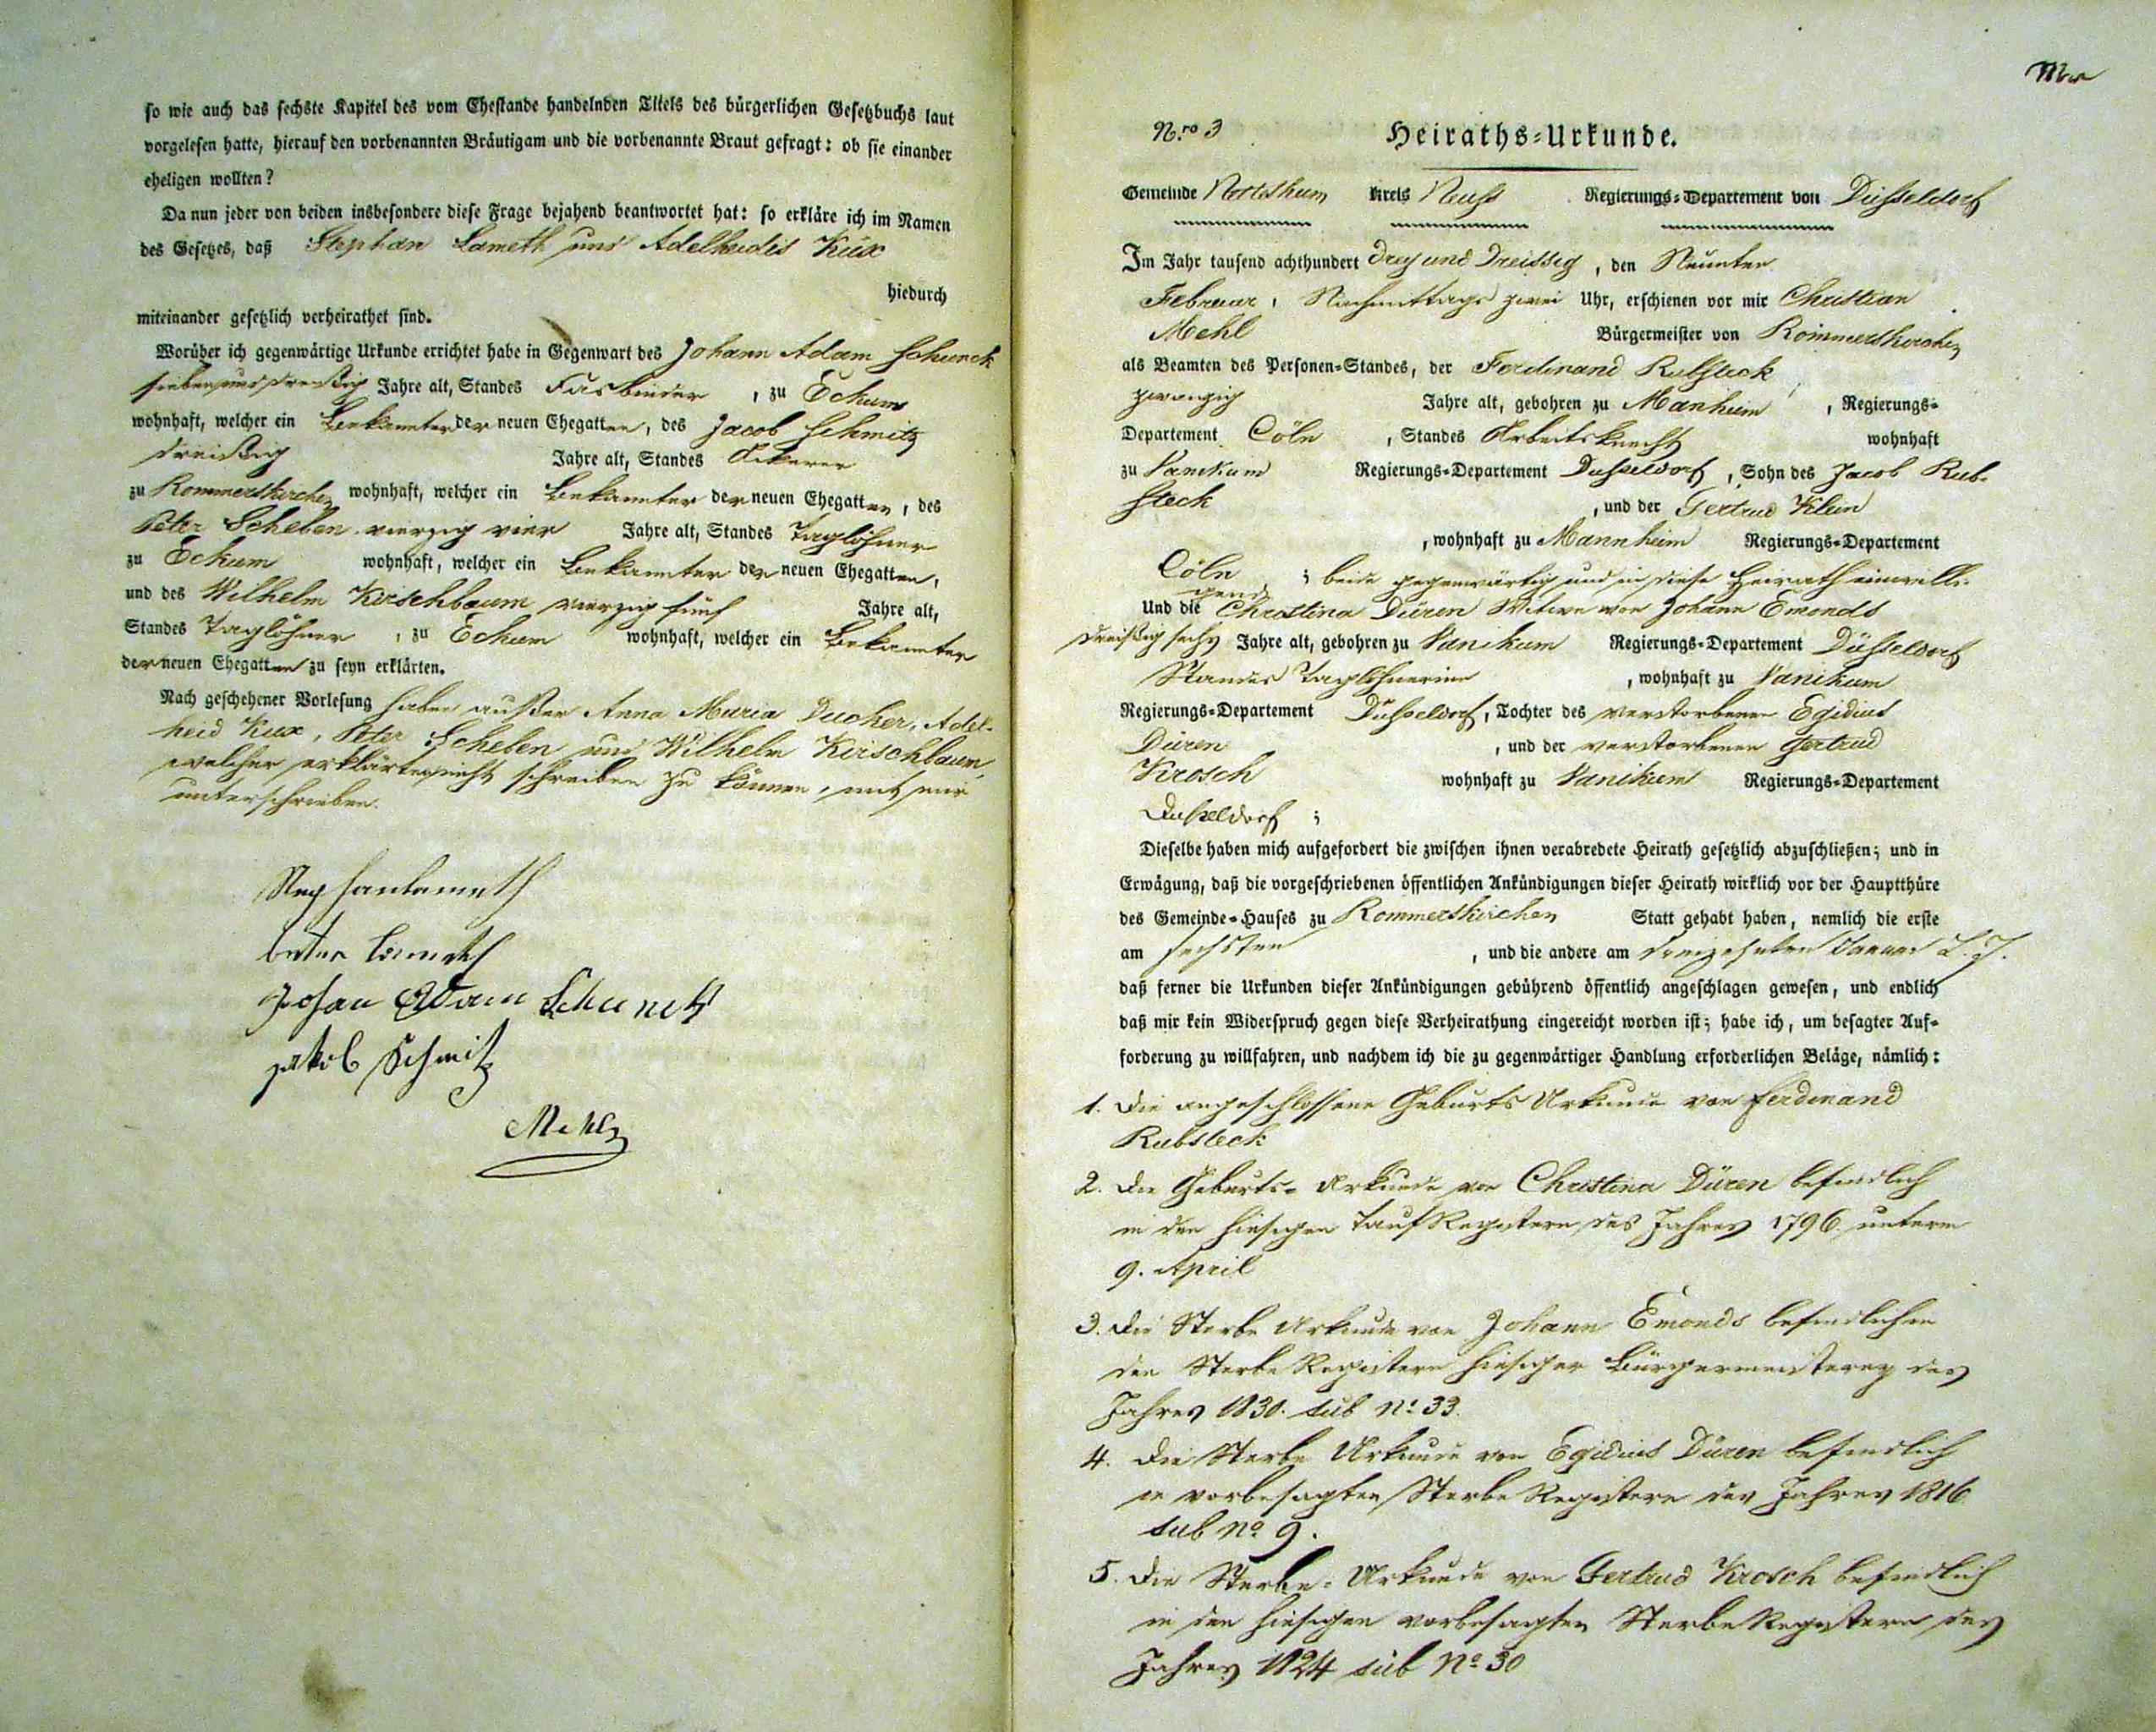 so wie auch das sechste Kapitel des vom Ehestande handelnden Titels des bürgerlichen Gesetzbuchs laut
vorgelesen hatte, hierauf den vorbenannten Bräutigam und die vorbenannte Braut gefragt: ob sie einander
eheligen wollten?
Da nun jeder von beiden insbesondere diese Frage bejahend beantwortet hat: so erkläre ich im Namen
des Gesetzes, daß Stephan Lameth und Adelheidis Küx
hiedurch
miteinander gesetzlich verheirathet sind.
Worüber ich gegenwärtige Urkunde errichtet habe in Gegenwart des Johann Adam Schunck
siebenunddreißig Jahre alt, Standes Fasbinder, zu Eckum
wohnhaft, welcher ein Bekannter der neuen Ehegatten, des Jacob Schmitz
dreißig Jahre alt, Standes Ackerer
zu Rommerskirchen wohnhaft, welcher ein Bekannter der neuen Ehegatten, des
Peter Scheben vierzig vier Jahre alt, Standes Taglöhner
zu Eckum wohnhaft, welcher ein Bekannter der neuen Ehegatten,
und des Wilhelm Kirschbaum vierzig fünf Jahre alt,
Standes Taglöhner, zu Eckum wohnhaft, welcher ein Bekannter
der neuen Ehegatten zu seyn erklärten.
Nach geschehener Vorlesung haben außer Anna Maria Ducker, Adel-
heid Küx, Peter Scheben und Wilhelm Kirschbaum,
welcher erklärten nicht schreiben zu können, mit mir
unterschrieben.
Johan Adam Schunck
Jakob Schmitz
Mehl
N.ro 3 Heiraths-Urkunde.
Gemeinde Kreis Neuss Regierungs-Departement von Düsseldorf
Im Jahr tausend achthundert drey und dreissig, den Neunten
Februar, Nachmittags zwei Uhr, erschienen vor mir Christian
Mehl Bürgermeister von Rommerskirchen
als Beamten des Personen-Standes, der Ferdinand Rubsteck
zwanzig Jahre alt, gebohren zu Manheim, Regierungs-
Departement Cöln, Standes Arbeitsknecht wohnhaft
zu Vanikum Regierungs-Departement Düsseldorf, Sohn des Jacob Rub-
steck, und der Gertrud Klein
, wohnhaft zu Mannheim Regierungs-Departement
Cöln; beide gegenwärtig und in diese Heirath einwilli-
gend
Und die Christina Düren Witwe von Johann Emonds
dreißig sechs Jahre alt, gebohren zu Vanikum Regierungs-Departement Düsseldorf
Standes Taglöhnerinn, wohnhaft zu Vanikum
Regierungs-Departement Düsseldorf, Tochter des verstorbenen Egidius
Düren, und der verstorbenen Gertrud
Krosch wohnhaft zu Vanikum Regierungs-Departement
Düsseldorf;
Dieselbe haben mich aufgefordert die zwischen ihnen verabredete Heirath gesetzlich abzuschließen; und in
Erwägung, daß die vorgeschriebenen öffentlichen Ankündigungen dieser Heirath wirklich vor der Hauptthüre
des Gemeinde-Hauses zu Rommerskirchen Statt gehabt haben, nemlich die erste
am sechsten, und die andere am dreizehnten Januar L. J.
daß ferner die Urkunden dieser Ankündigungen gebührend öffentlich angeschlagen gewesen, und endlich
daß mir kein Widerspruch gegen diese Verheirathung eingereicht worden ist; habe ich, um besagter Auf-
forderung zu willfahren, und nachdem ich die zu gegenwärtiger Handlung erforderlichen Beläge, nämlich:
1. die angeschlossene Geburts Urkunde von Ferdinand
Rubsteck
2. die Geburts-Urkunde von Christina Düren befindlich
in den hiesigen Tauf Registern des Jahres 1796 unterm
9. April
3. die Sterbe Urkunde von Johann Emonds befindlich in
den Sterbe Registern hiesiger Bürgermeisterey des
Jahres 1830. sub No 33.
4. die Sterbe Urkunde von Egidius Düren befindlich
in vorbesagten Sterbe Registern des Jahres 1816
sub No 9.
5. die Sterbe-Urkunde von Gertrud Krosch befindlich
in den hiesigen vorbesagten Sterbe Registern des
Jahres 1824 sub No 30